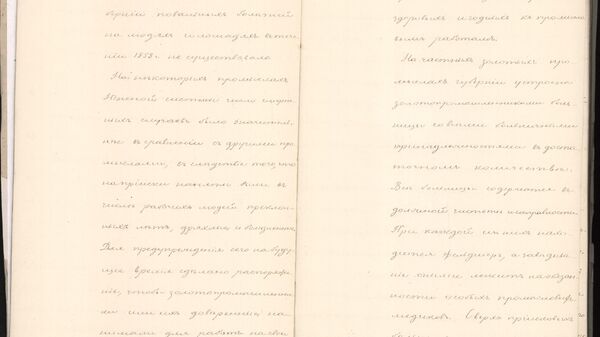 бернiи повальныхъ болѣзней
на людяхъ и лошадяхъ въ тече
нiи 1858 г. не существовало.
На нѣкоторыхъ промыслахъ
Южной системы число смерт
ныхъ случаевъ было значитель
нѣе въ сравненiи съ другими про
мыслами, въ слѣдствiе того, что
на прiиски наняты были въ
числѣ рабочихъ людей преклон
ныхъ лѣтъ, дряхлые и
Для предупрежденiя сего на буду
щее время сдѣлано распоряже
нiе, чтобы золотопромышленни
ки или ихъ довѣренные на
нимали для работъ людей
здоровыхъ и годныхъ къ промысло
вымъ работамъ.
На частныхъ золотыхъ про
мыслахъ губернiи устроены
золотопромышленниками боль
ницы со всѣми больничными
принадлежностями въ доста
точномъ количествѣ.
Всѣ больницы содержатся въ
должной чистотѣ и исправности.
При каждой изъ нихъ нахо
дится фельдшеръ, а завѣдыва
нiе оными лежитъ на обязан
ности особыхъ промысловыхъ
медиковъ. Сверхъ прiисковыхъ